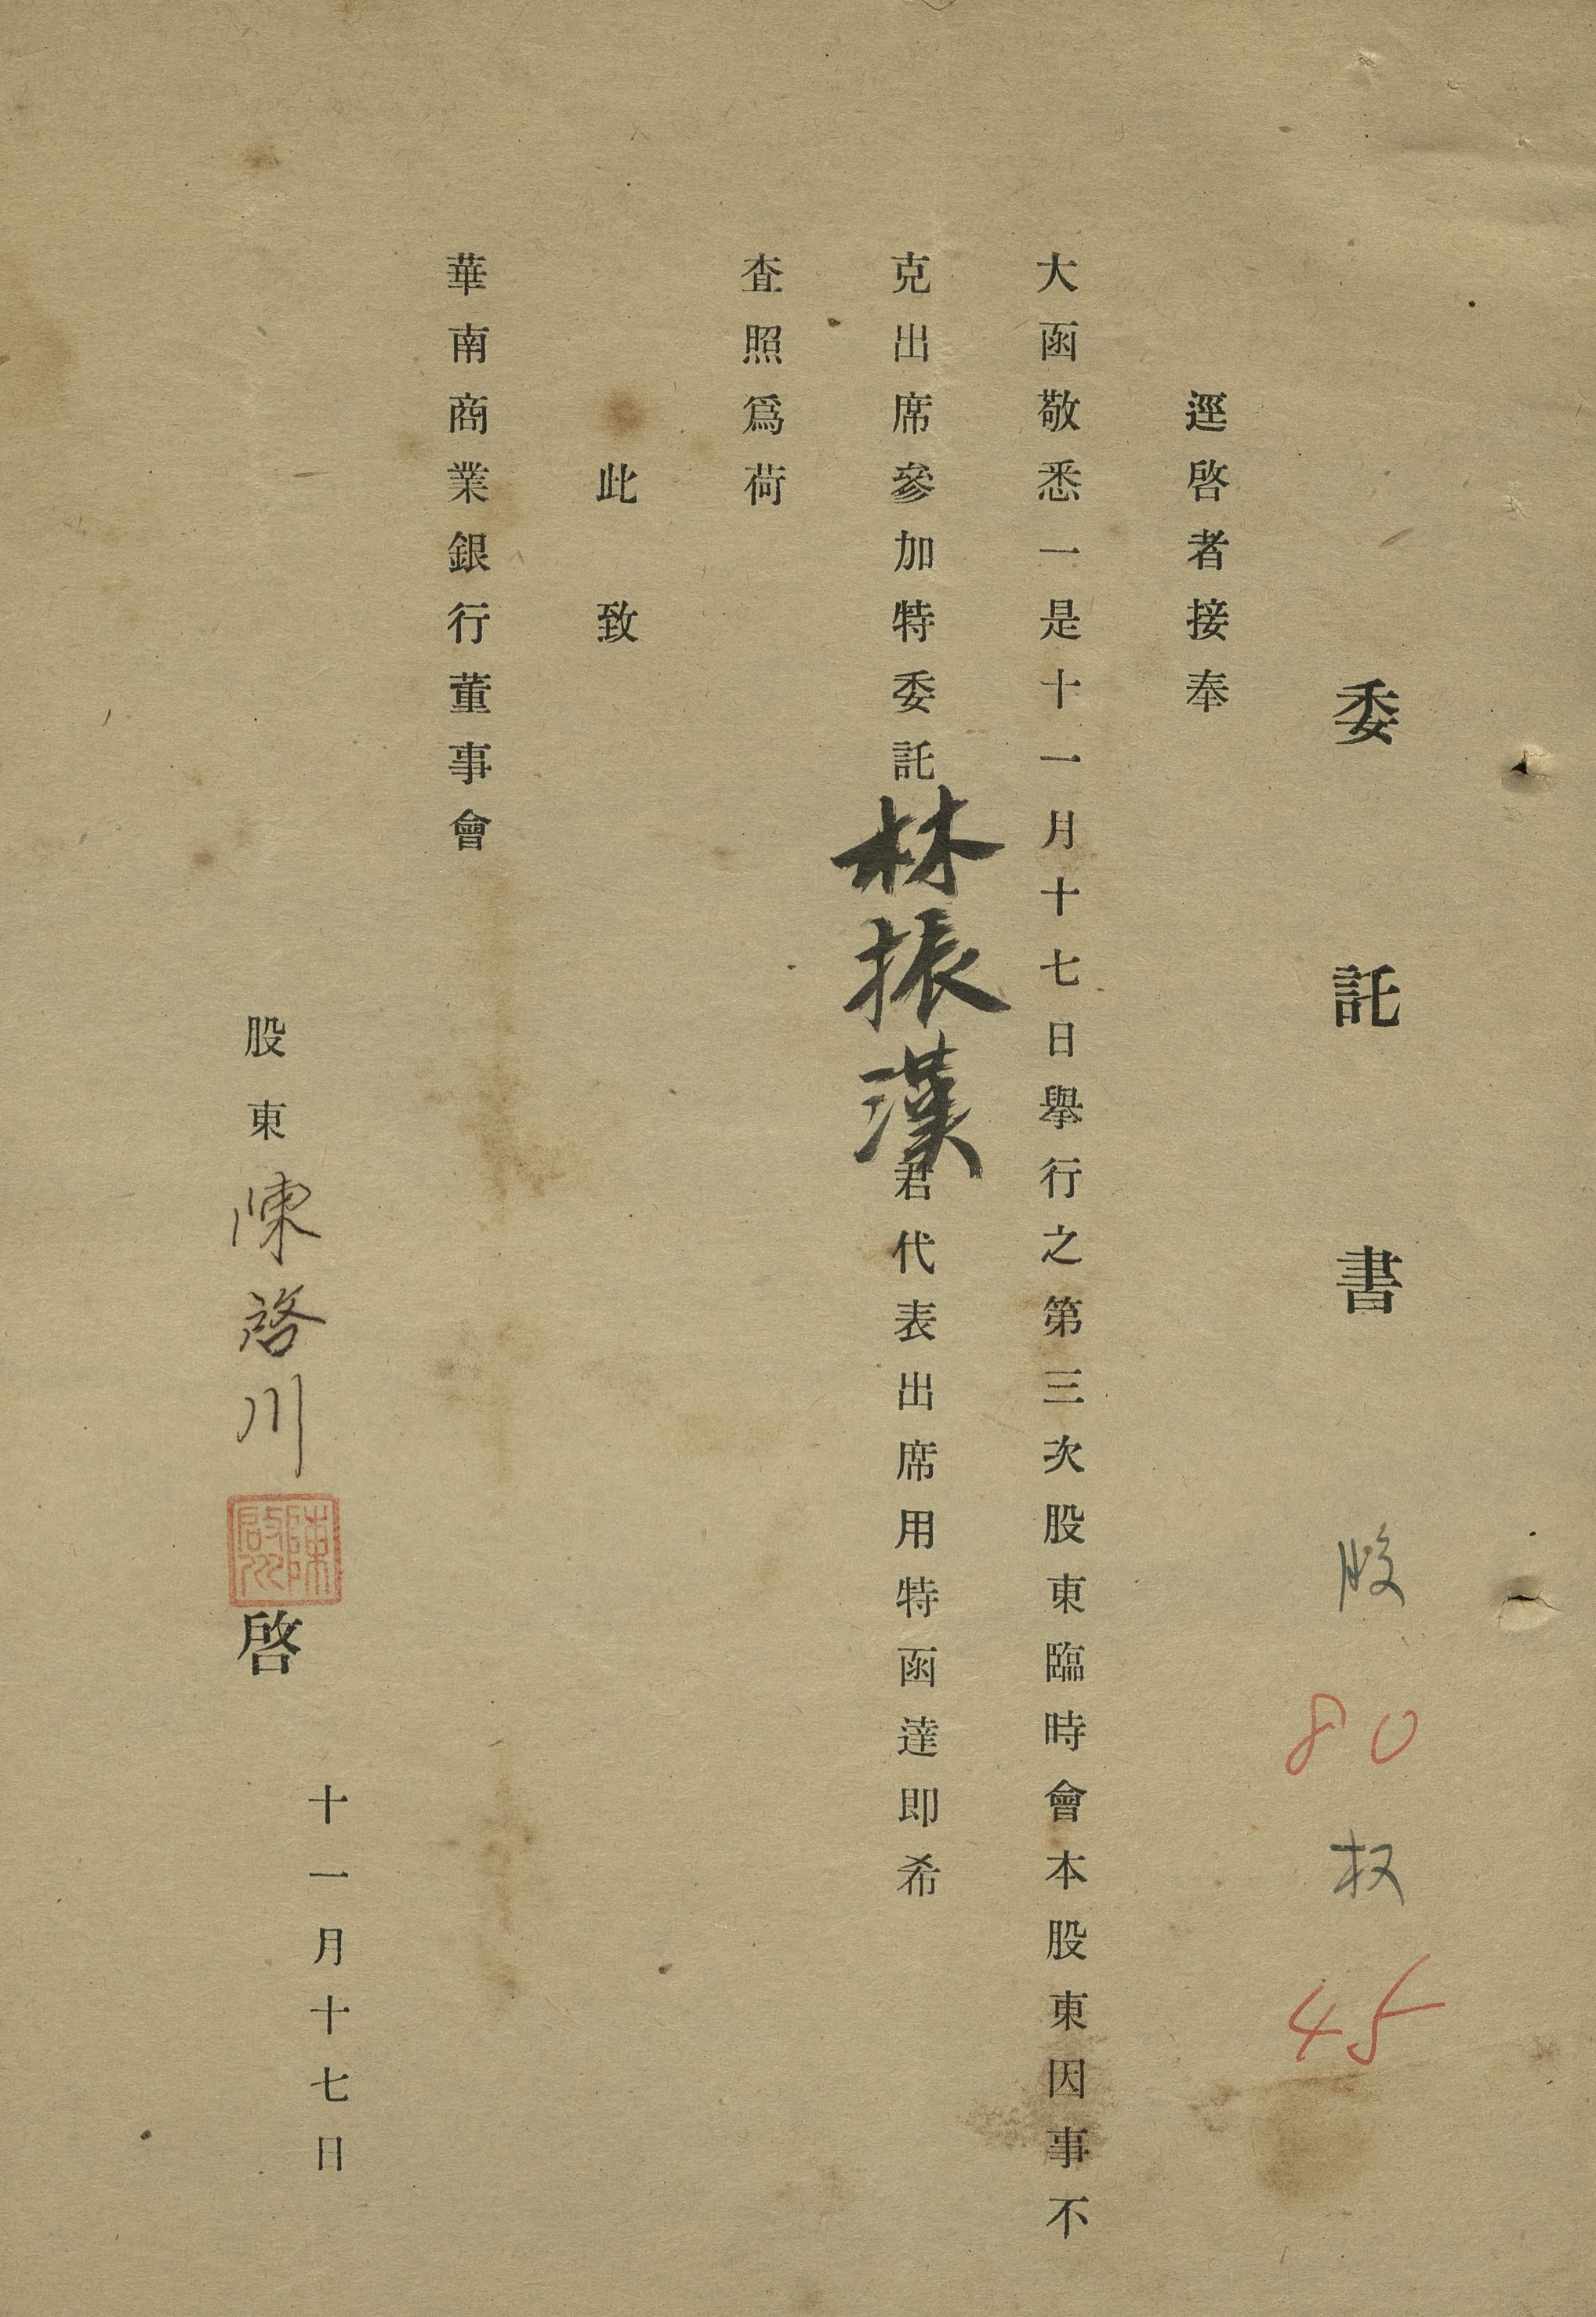 委託書 股 80 权 45
逕啓者接奉
大函敬悉一是十一月十七日舉行之第三次股東臨時會本股東因事不
克出席參加特委託林振漢君代表出席用特函達即希
查照爲荷
此致
華南商業銀行董事會
十一月十七日
股東 陳啓川 啓
陳啟川